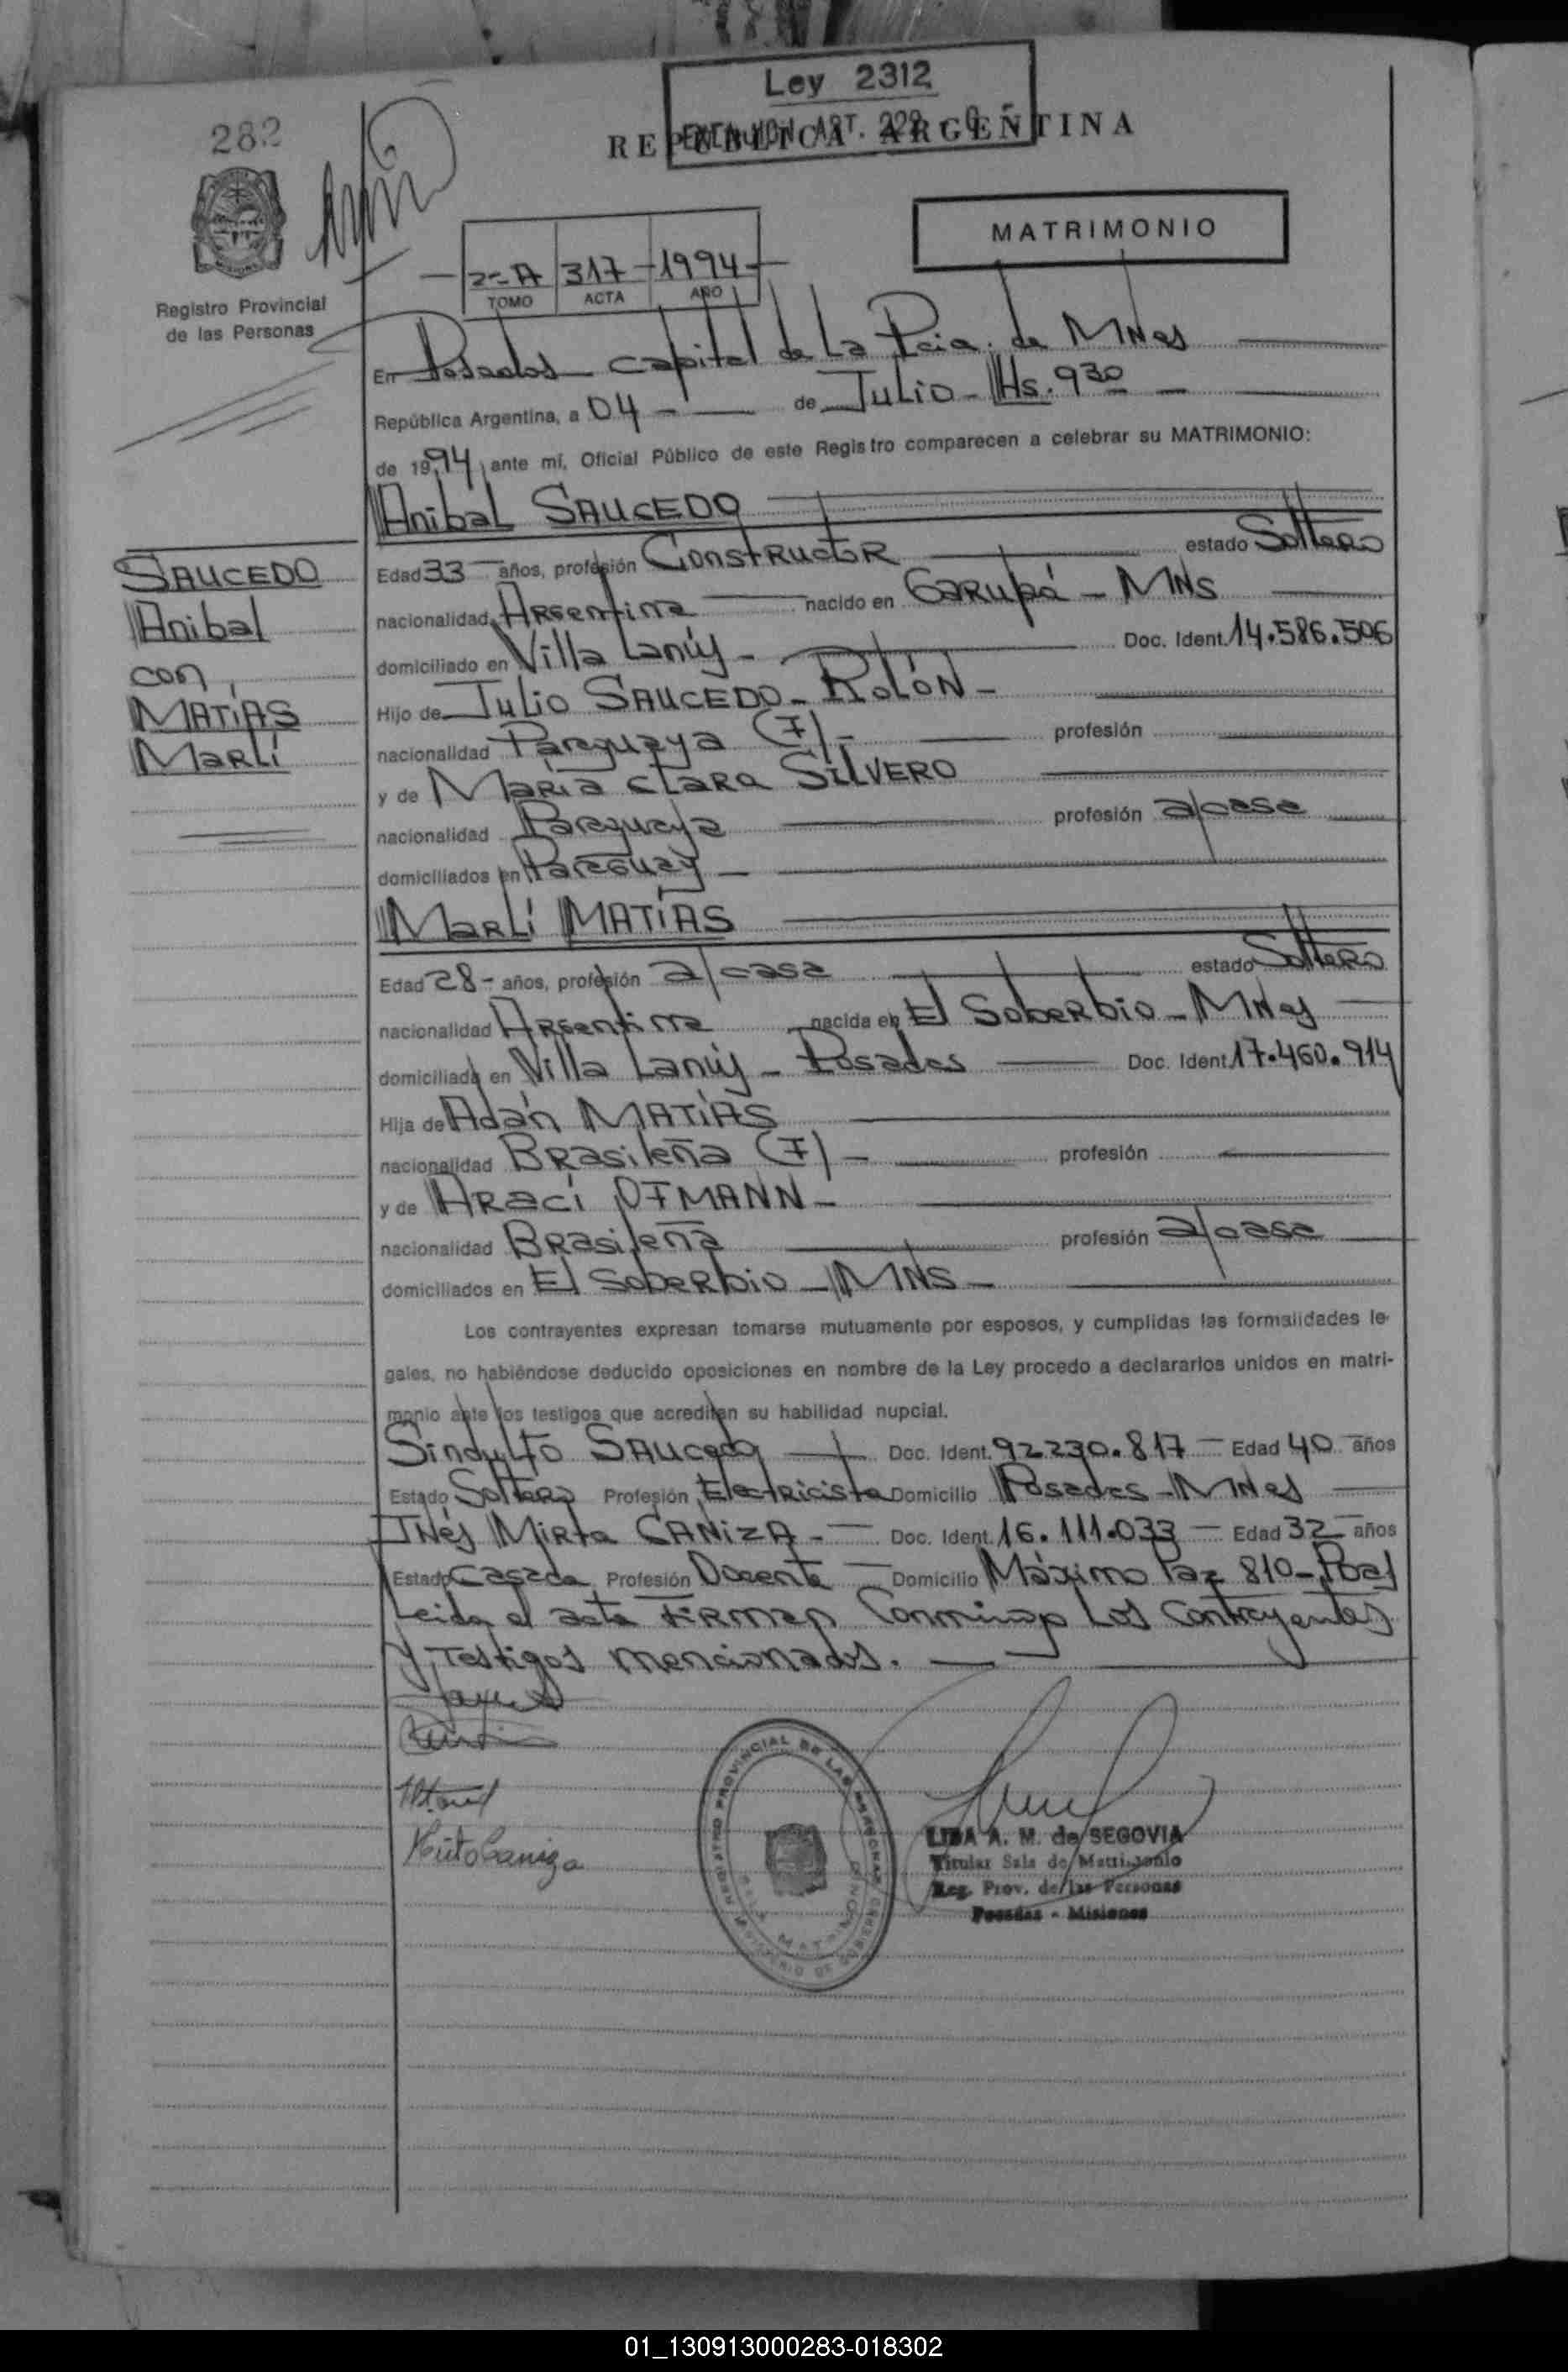 Ley 2312
282
REPUBLICA ARGENTINA
MATRIMONIO
2-A 317 1994
TOMO ACTA AÑO
Registro Provincial
de las Personas
En Posadas capital de La Pcia. de MNes
República Argentina, a 04 - de Julio - Hs. 930
de 1994 ante mí, Oficial Público de este Registro comparecen a celebrar su MATRIMONIO:
Anibal SAUCEDO
SAUCEDO
Anibal
con
MATÍAS
Marlí
Edad 33 años, profesión Constructor estado Soltero
nacionalidad Argentina nacido en Garupá - MNS
domiciliado en Villa Lanús - Doc. Ident. 14.586.506
Hijo de Julio SAUCEDO - ROLÓN -
nacionalidad Paraguaya (F) - profesión
y de María Clara SILVERO
nacionalidad Paraguaya profesión a/casa
domiciliados en Paraguay -
Marlí MATÍAS
Edad 28 - años, profesión a/casa estado Soltero
nacionalidad Argentina nacida en El Soberbio - MNes
domiciliada en Villa Lanús - Posadas Doc. Ident. 17.460.914
Hija de Adán MATÍAS
nacionalidad Brasileña (F) - profesión
y de Araci OTMANN -
nacionalidad Brasileña profesión a/casa
domiciliados en El Soberbio - MNS -
Los contrayentes expresan tomarse mutuamente por esposos, y cumplidas las formalidades le-
gales, no habiéndose deducido oposiciones en nombre de la Ley procedo a declararlos unidos en matri-
monio ante los testigos que acreditan su habilidad nupcial.
Sindulfo Saucedo Doc. Ident. 92.230.817 - Edad 40 años
Estado Soltero Profesión Electricista Domicilio Posadas - MNes
INés Mirta CANIZA - Doc. Ident. 16.111.033 - Edad 32 años
Estado Casada Profesión Docente Domicilio Máximo Paz 810 - Pdas
Leida el acta Firman Conmingo Los Contrayentes
y Testigos mencionados.
LIDA A. M. de SEGOVIA
Titular Sala de Matrimonio
Reg. Prov. de las Personas
Posadas - Misiones
01_130913000283-018302